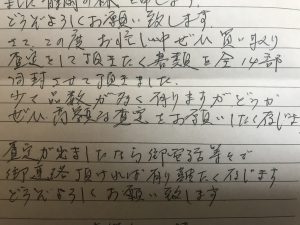 どうぞよろしくお願い致します.
さて この度 お忙しい中 ぜひ 買い取り
査定をして頂きたく書類を全14部
同封させて頂きました.
少々品数が多く有りますがどうか
ぜひ 高額な査定をお願いしたく存じま
査定が出ましたなら御電話等々で
御連絡頂ければ有り難たく存じます
どうぞよろしくお願い致します